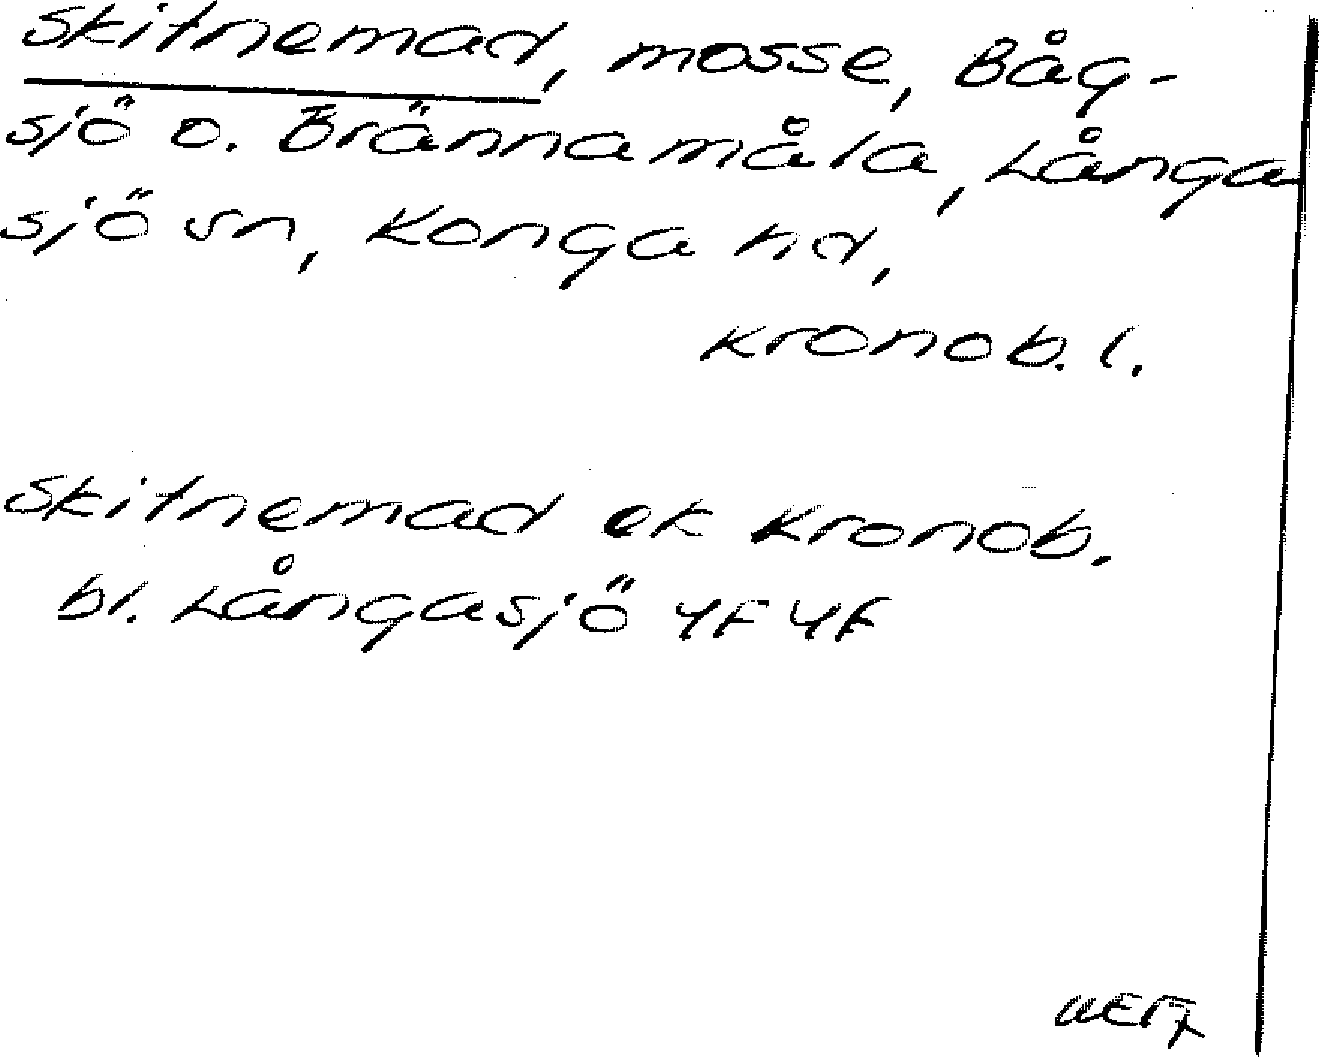 Skitnemad, mosse, Båg-
sjö o. Brännamåla, Långa
sjö sn, Konga hd,
Kronob. l.
Skitnemad ek Kronob.
bl. Långasjö 4F4f